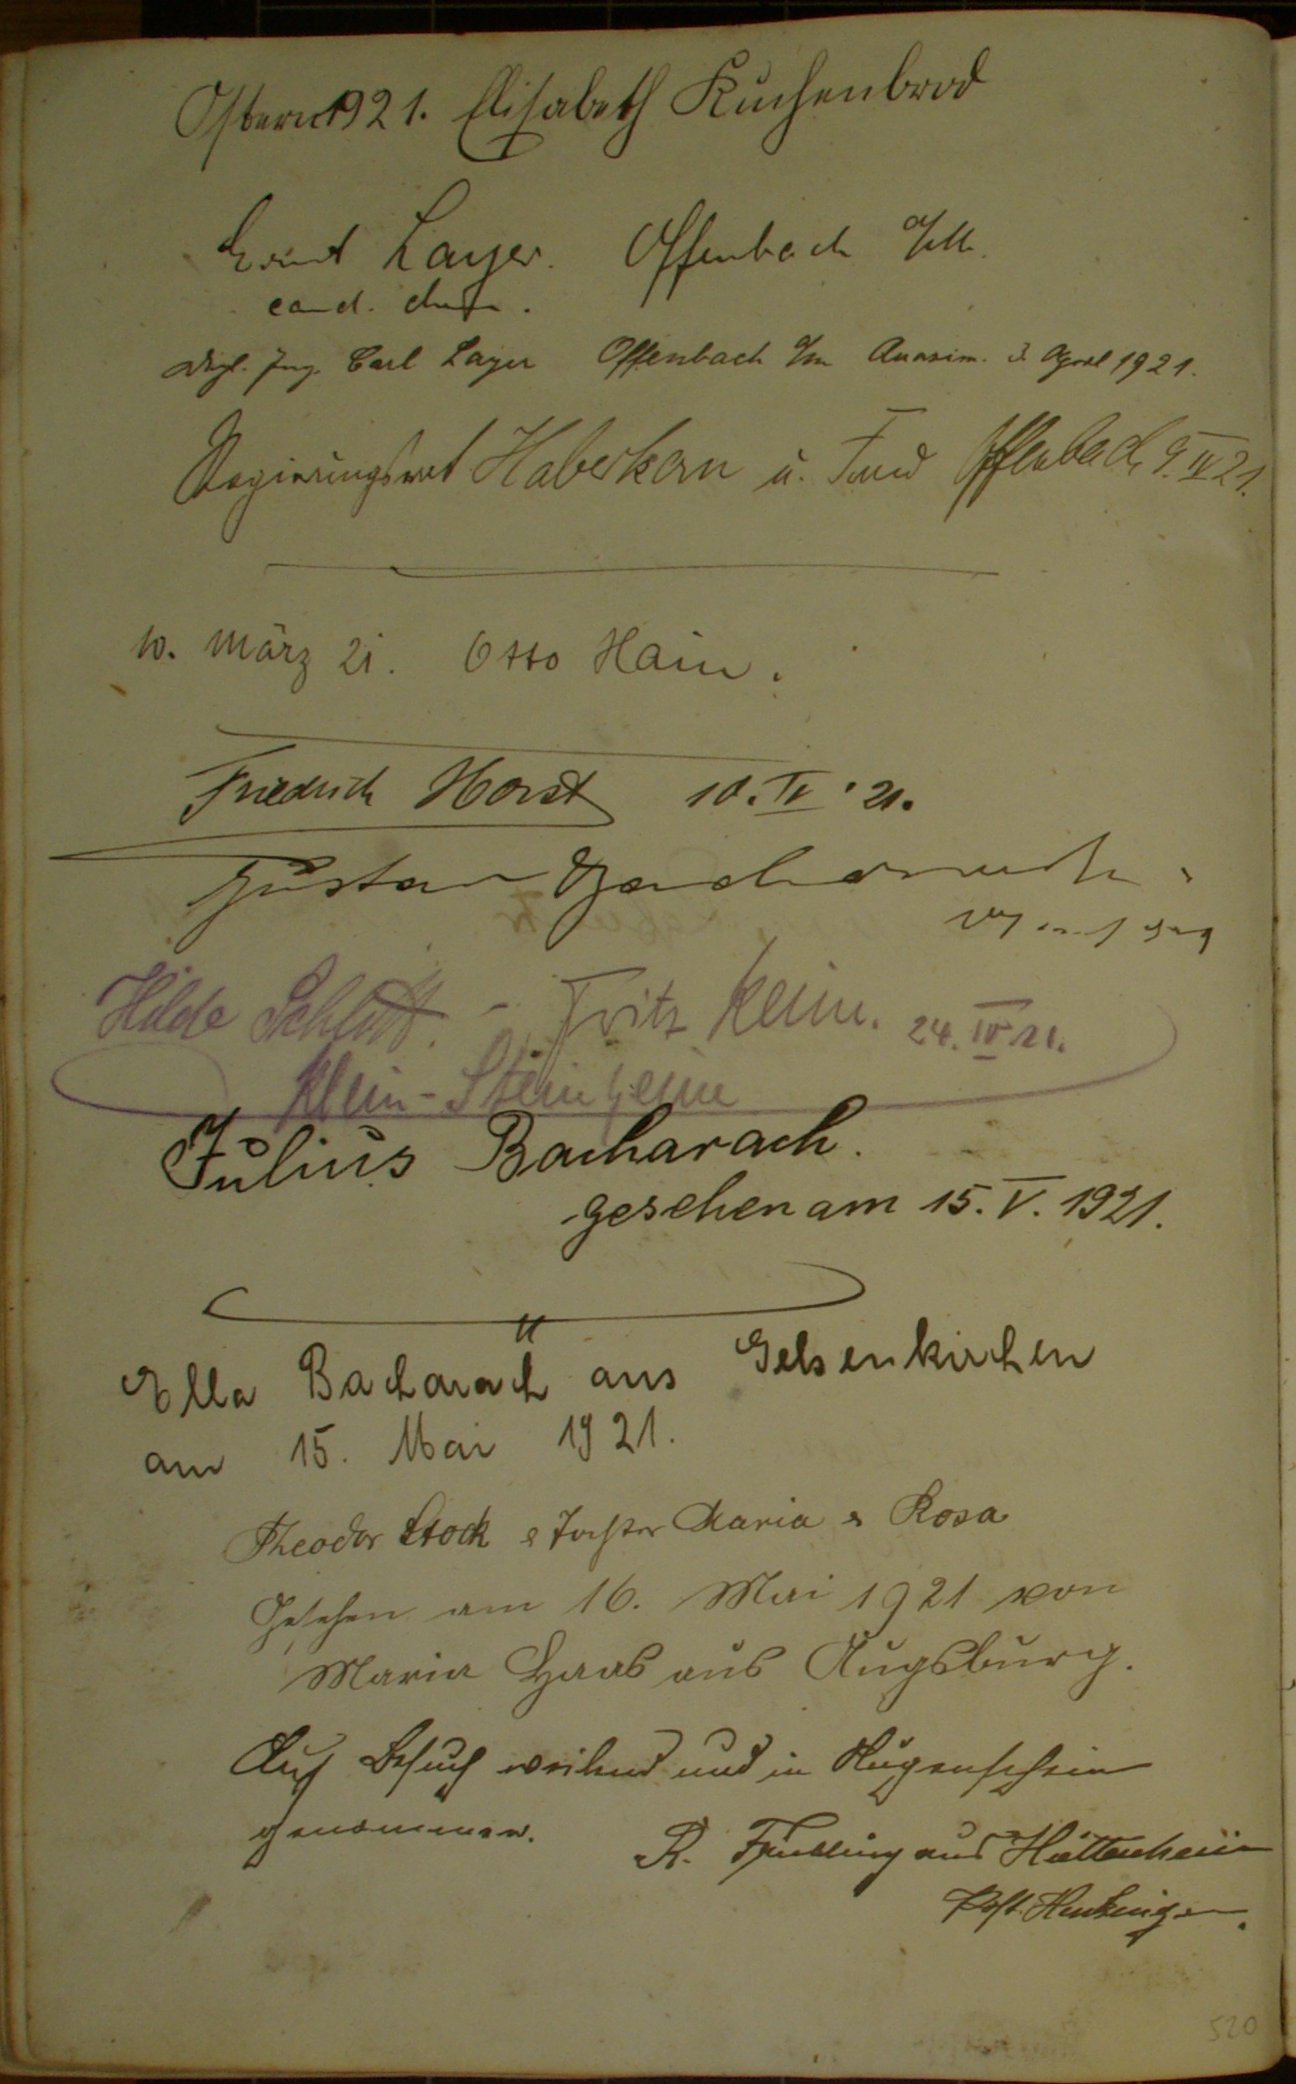 Ostern 1921. Elisabeth Kuchenbrod
Ernst Layer. Offenbach a/M.
cand. chem.
Dipl. Ing. Carl Layer Offenbach a/m April 1921.
Regierungsrat Haberkorn u. Frau Offenbach 9. IV 21.
10. März 21. Otto Hain.
Friedrich Horst 10. IV. '21.
Gustav
Hilde Schlott. - Fritz Keim. 24. IV 21.
Klein-Steinheim
Julius Bacharach.
gesehen am 15. V. 1921.
Ella Bacharach aus Gelsenkirchen
am 15. Mai 1921.
Theodor Stock & Tochter Maria & Rosa
Gesehen am 16. Mai 1921 von
Maria Haas aus Augsburg.
Auf Besuch weilend und in Augenschein
genommen.
R. Frühling aus Hüttenheim
Post
520